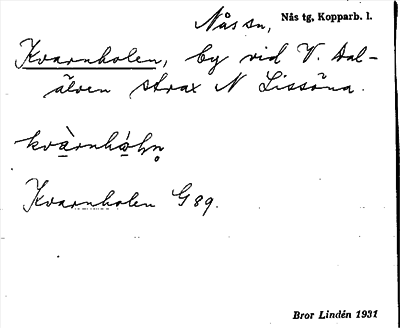 Nås sn, Nås tg, Kopparb. l.
Kvarnholen, by vid V. Dal-
älven strax N Lissöna.
Kvarnholen G 89.
Bror Lindén 1931